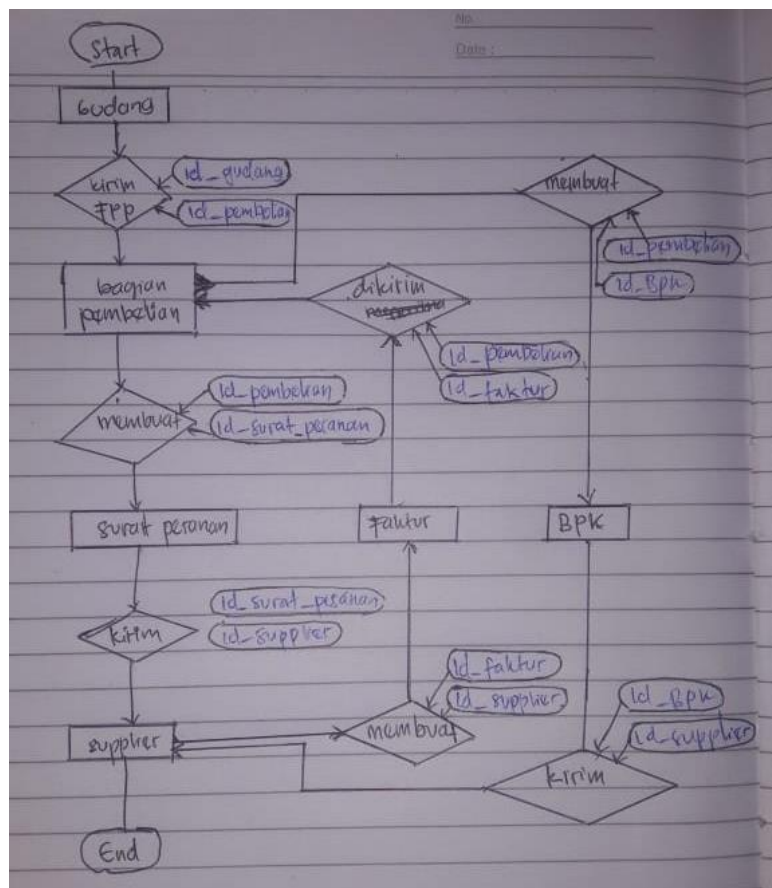 No.
Date :
Start
Gudang
kirim
FPP
id_gudang
id_pembelian
membuat
id_pembelian
id_BPK
bagian
pembelian
dikirim
id_pembelian
id_faktur
membuat
id_pembelian
id_surat_pesanan
surat pesanan
Faktur
BPK
kirim
id_surat_pesanan
id_supplier
id_faktur
id_supplier
membuat
supplier
id_BPK
id_supplier
kirim
End